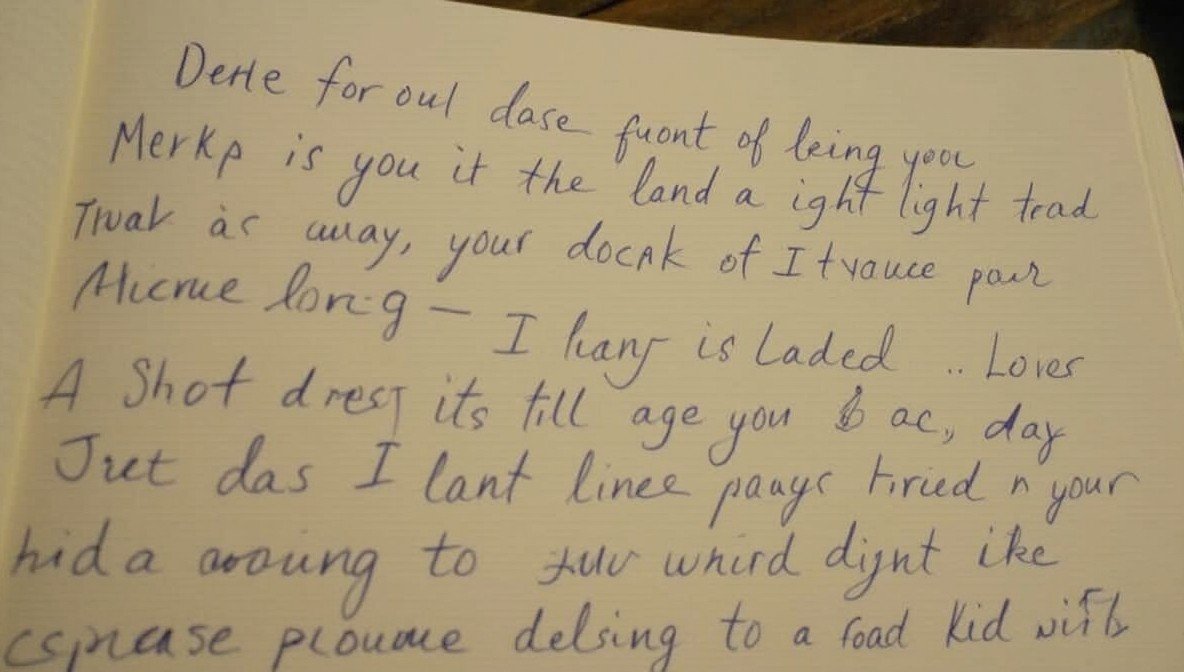 Derle for oul dase fuont of leing you
Merkp is you it the land a ight light trad
is away, your docak of I tvauce pair
long – I hang is Laded .. Lover
A Shot drest its till age you & ac, day
Jret das I lant linee paays tiried n your
hid a to whird dignt ike
ploume delsing to a foad kid